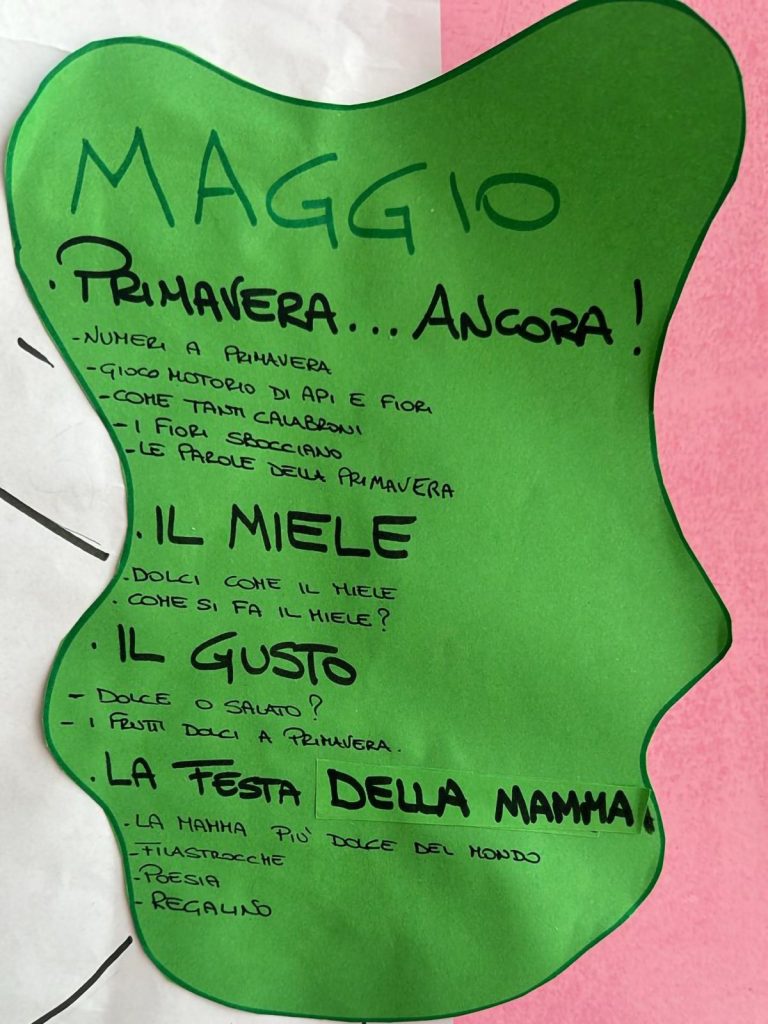 MAGGIO
. PRIMAVERA... ANCORA!
- NUMERI A PRIMAVERA
- GIOCO MOTORIO DI API E FIORI
- COME TANTI CALABRONI
- I FIORI SBOCCIANO
- LE PAROLE DELLA PRIMAVERA
. IL MIELE
. DOLCI COME IL MIELE
. COME SI FA IL MIELE?
. IL GUSTO
- DOLCE O SALATO?
- I FRUTTI DOLCI A PRIMAVERA.
. LA FESTA DELLA MAMMA!
. LA MAMMA PIU' DOLCE DEL MONDO
- FILASTROCCHE
- POESIA
- REGALINO